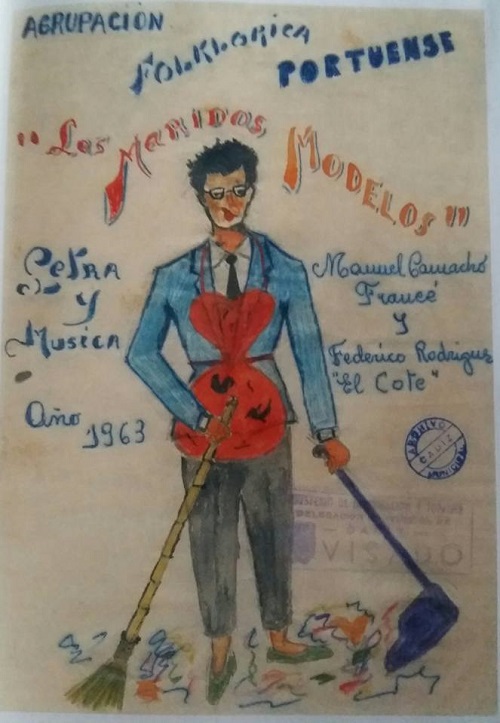 AGRUPACIÓN
FOLKLORICA
PORTUENSE
"Los MARIDOS
MODELOS"
LeTRA
Y
MUSICA
Año 1963
Manuel Camacho
Francé
Y
Federico Rodriguez
"El Cote"
ARCHIVO
CADIZ
MUNICIPAL
VISADO